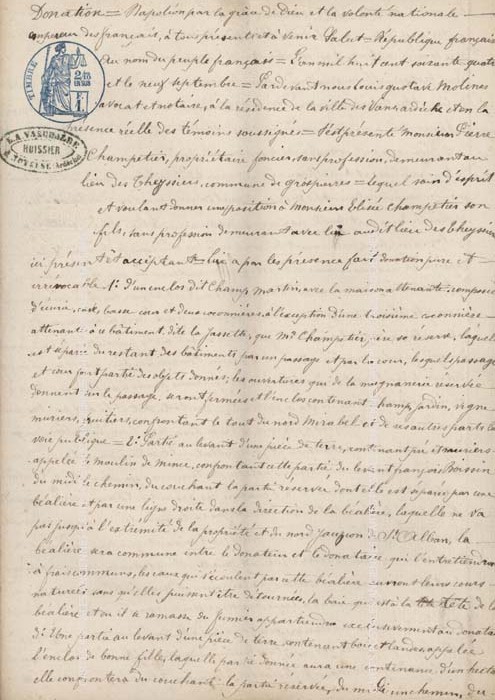 Donation = Napoléon par la grâce de Dieu et la volonté nationale
empereur des français, à tous présents et à venir Salut = République française
au nom du peuple français = L'an mil huit cent soixante quatre
et le neuf septembre = Pardevant nous Louis Gustave Molines
avocat et notaire, à la résidence de la ville des Vans ardèche et en la
présence réelle des témoins soussignés = S'est présenté Monsieur Pierre
Champetier, propriétaire foncier, sans profession, demeurant au
lieu des Theyssiers, commune de grospierres = lequel sain d'esprit
et voulant donner une position à Monsieur Elisée Champetier son
fils, sans profession demeurant avec lui audit lieu des Theyssiers
ici présent et acceptant = lui a par les présentes fait donation pure et
irrévocable 1° d'un enclos dit Champ Martin, avec la maison attenante, composée
d'écurie, basse cour et deux magnanières à l'exception d'une troisième
attenant à ce bâtiment, dite la Jassette, que Mr Champetier père se réserve, laquelle
est séparée du restant des bâtiments par un passage et par la cour, lesquels passage
et cour font partie des objets donnés; les ouvertures que de la magnanerie réservée
donnent sur le passage, seront fermées et l'enclos contenant champ, jardin, vigne
muriers, fruitiers, confrontant le tout du nord Mirabel et de ses autres parts la
voie publique = 2° Partie au levant d'une pièce de terre, contenant pré et muriers
appelée le moulin de confrontant cette partie du levant françois Boissin
du midi le chemin, du couchant la partie réservée dont elle est séparée par une
béalière et par une ligne droite dans la direction de la béalière, laquelle ne va
pas jusqu'à l'extrémité de la propriété et du nord de St Alban, la
béalière sera commune entre le donateur et le donataire qui l'entretiendront
à frais communs, les eaux qui s'écoulent par cette béalière suivront leur cours
naturel, sans qu'elles puissent être détournées, la qui est à la tête de la
béalière et où il a ramassé du fumier appartiendra exclusivement au donataire
3° Une partie au levant d'une pièce de terre, contenant bois et landes, appelée
l'enclos de bonne fille, laquelle partie donnée aura une contenance d'un hectare
elle confrontera du couchant la partie réservée, du midi un chemin, du
TIMBRE
LA VASCHALDE
HUISSIER